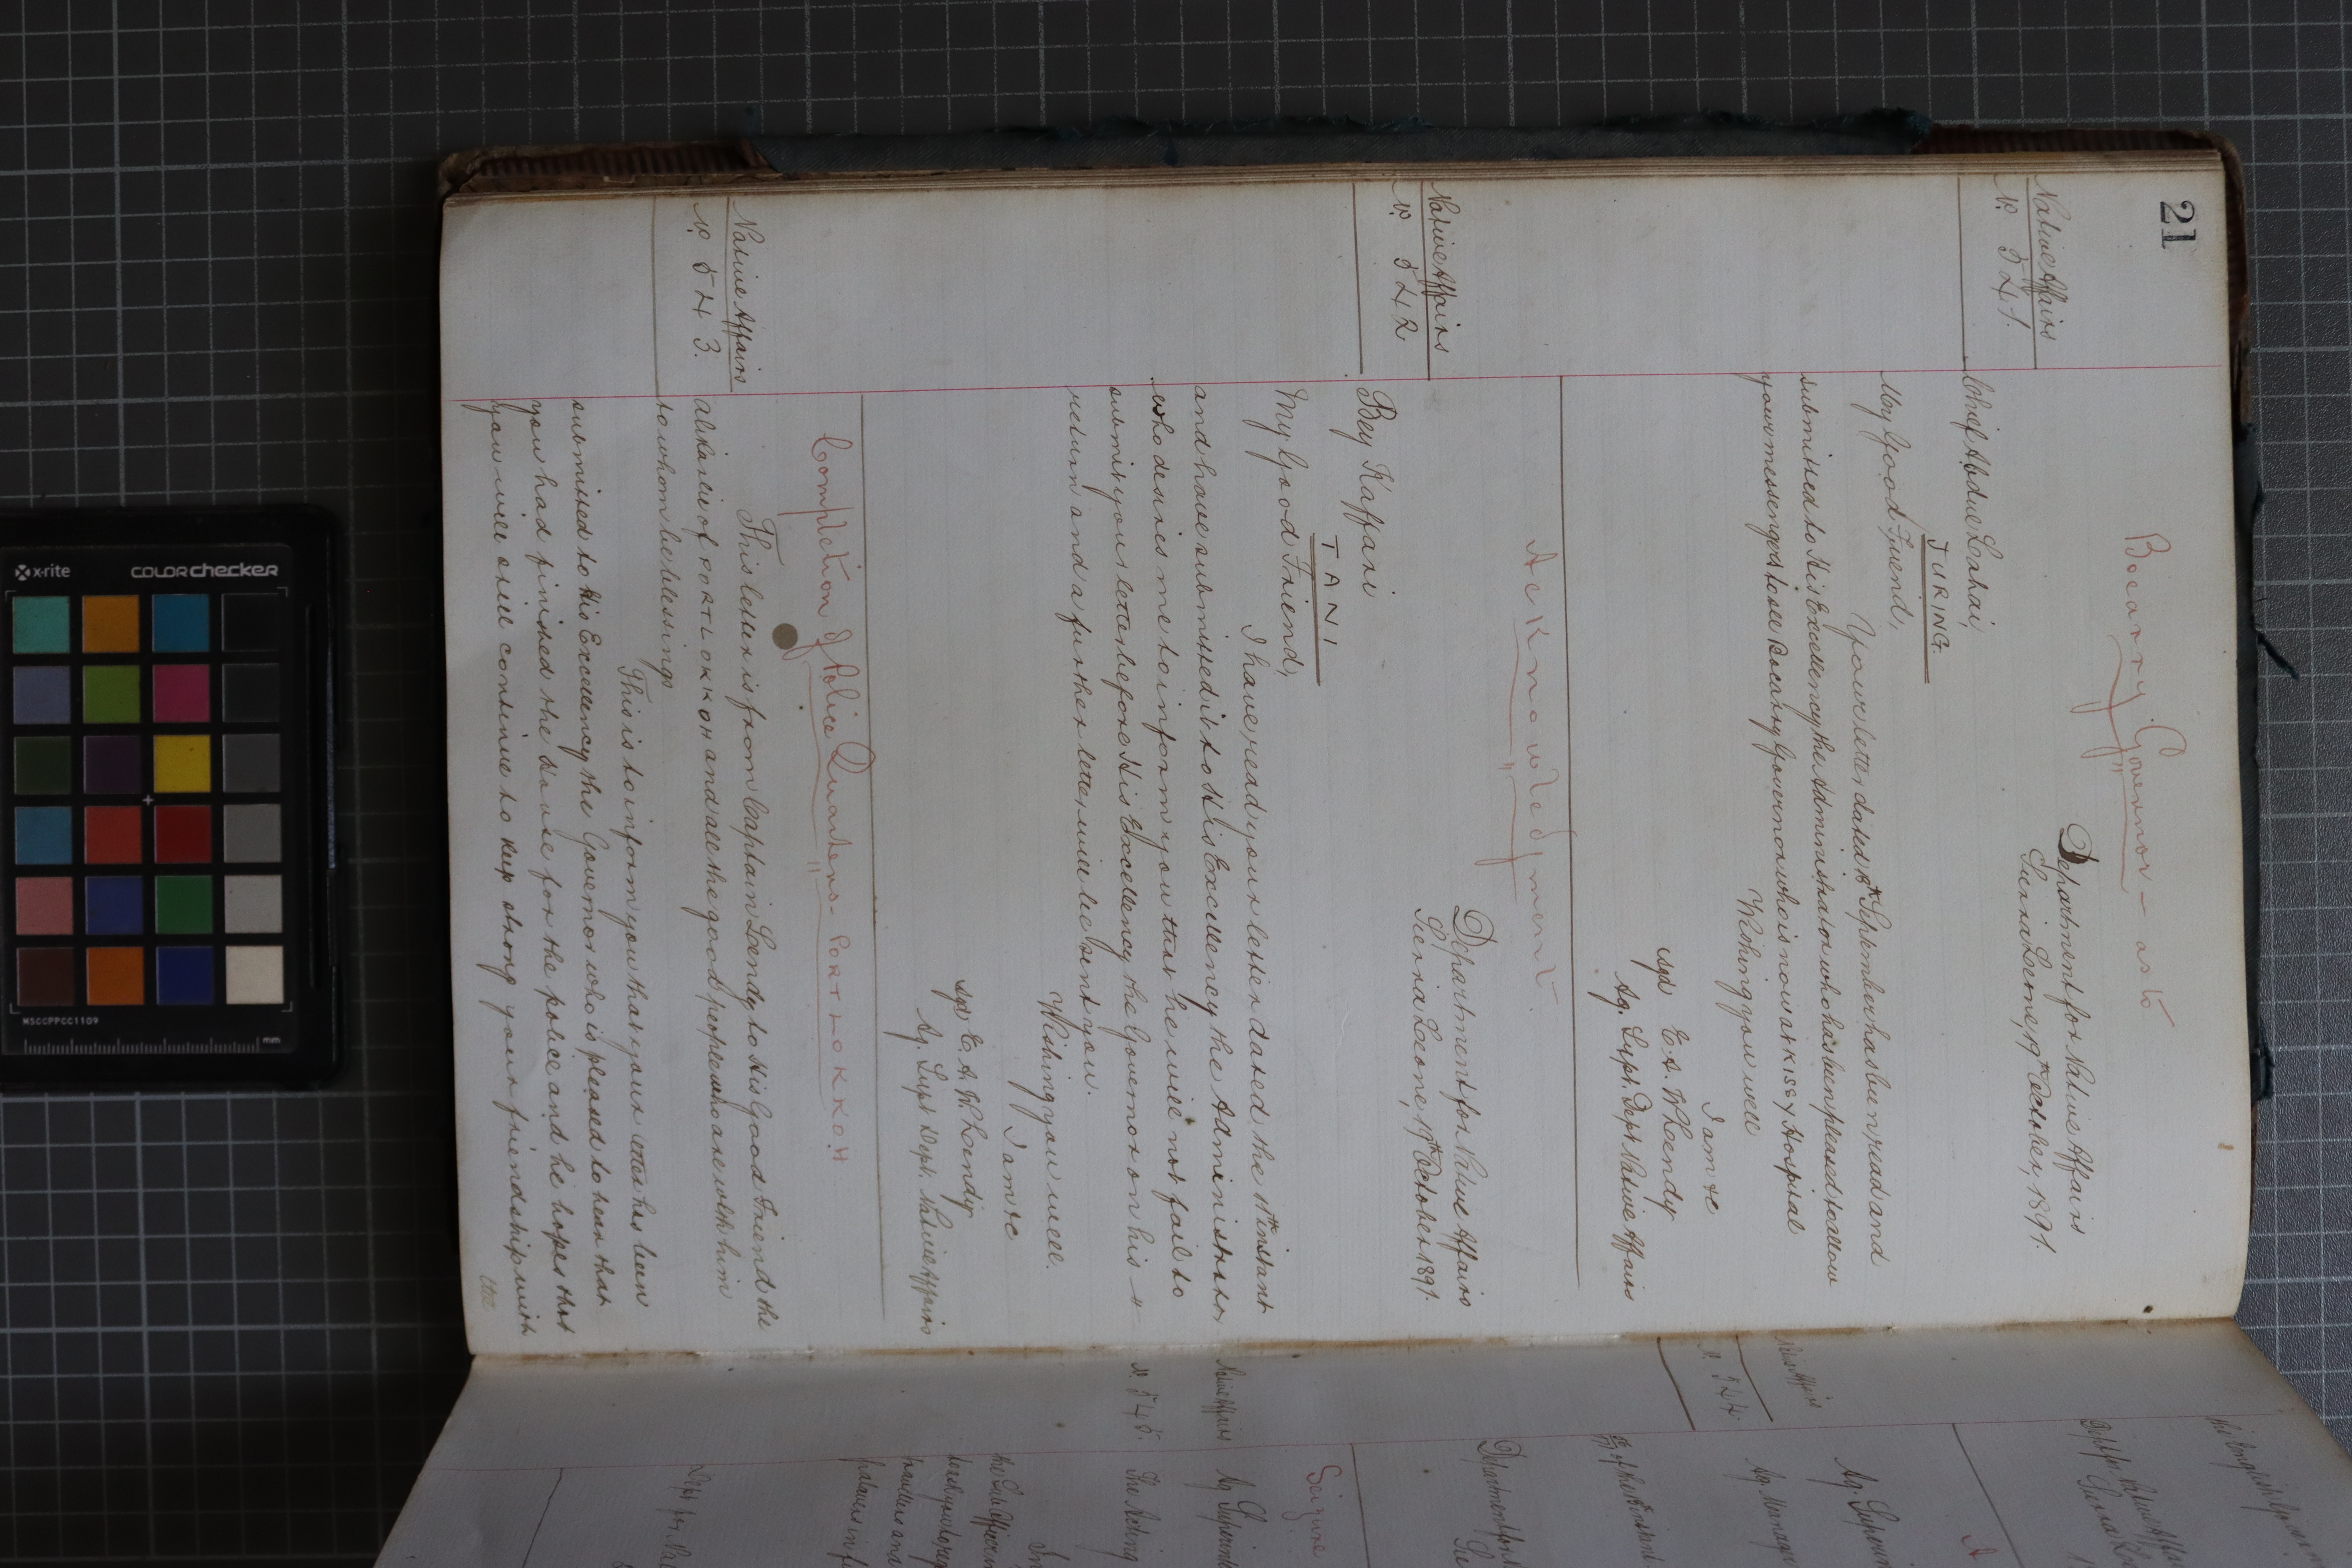 21
Boccarry Governor — as to
Native Affairs
No. 541.
Department for Native Affairs
Sierra Leone, 19th October, 1891.
Chief Abdul Lahai,
TURING.
My Good Friend,
Your letter dated 18th September has been read and
submitted to His Excellency the Administrator who has been pleased to allow
your messengers to see Bocarry Governor who is now at KISSY Hospital
Wishing you well
I am &c
sgd E. A. W. Lendy
Ag. Supt. Dept. Native Affairs
Acknowledgment.
Native Affairs
No. 542
Department for Native Affairs
Sierra Leone, 19th October 1891.
Bey Kaffari
TANI
My Good Friend,
I have read your letter dated the 11th instant
and have submitted it to His Excellency the Administrator
who desires me to inform you that he will not fail to
submit your letter before His Excellency the Governor on his
return and a further letter will be sent you.
Wishing you well.
I am &c
sgd E. A. W. Lendy
Ag. Supt. Dept. Native Affairs
Completion of Police Quarters - PORT LOKKOH
Native Affairs
No. 543.
This letter is from Captain Lendy to His Good Friend the
Alikalie of PORT LOKKOH and all the good people who are with him
to whom be blessings
This is to inform you that your letter has been
submitted to His Excellency the Governor who is pleased to hear that
you had finished the house for the police and he hopes that
you will still continue to keep strong your friendship with
Native Affairs
No. 544.
Ag.
Ag. Manager
Department for
Seizure
Native Affairs
No. 545.
Ag.
The Acting